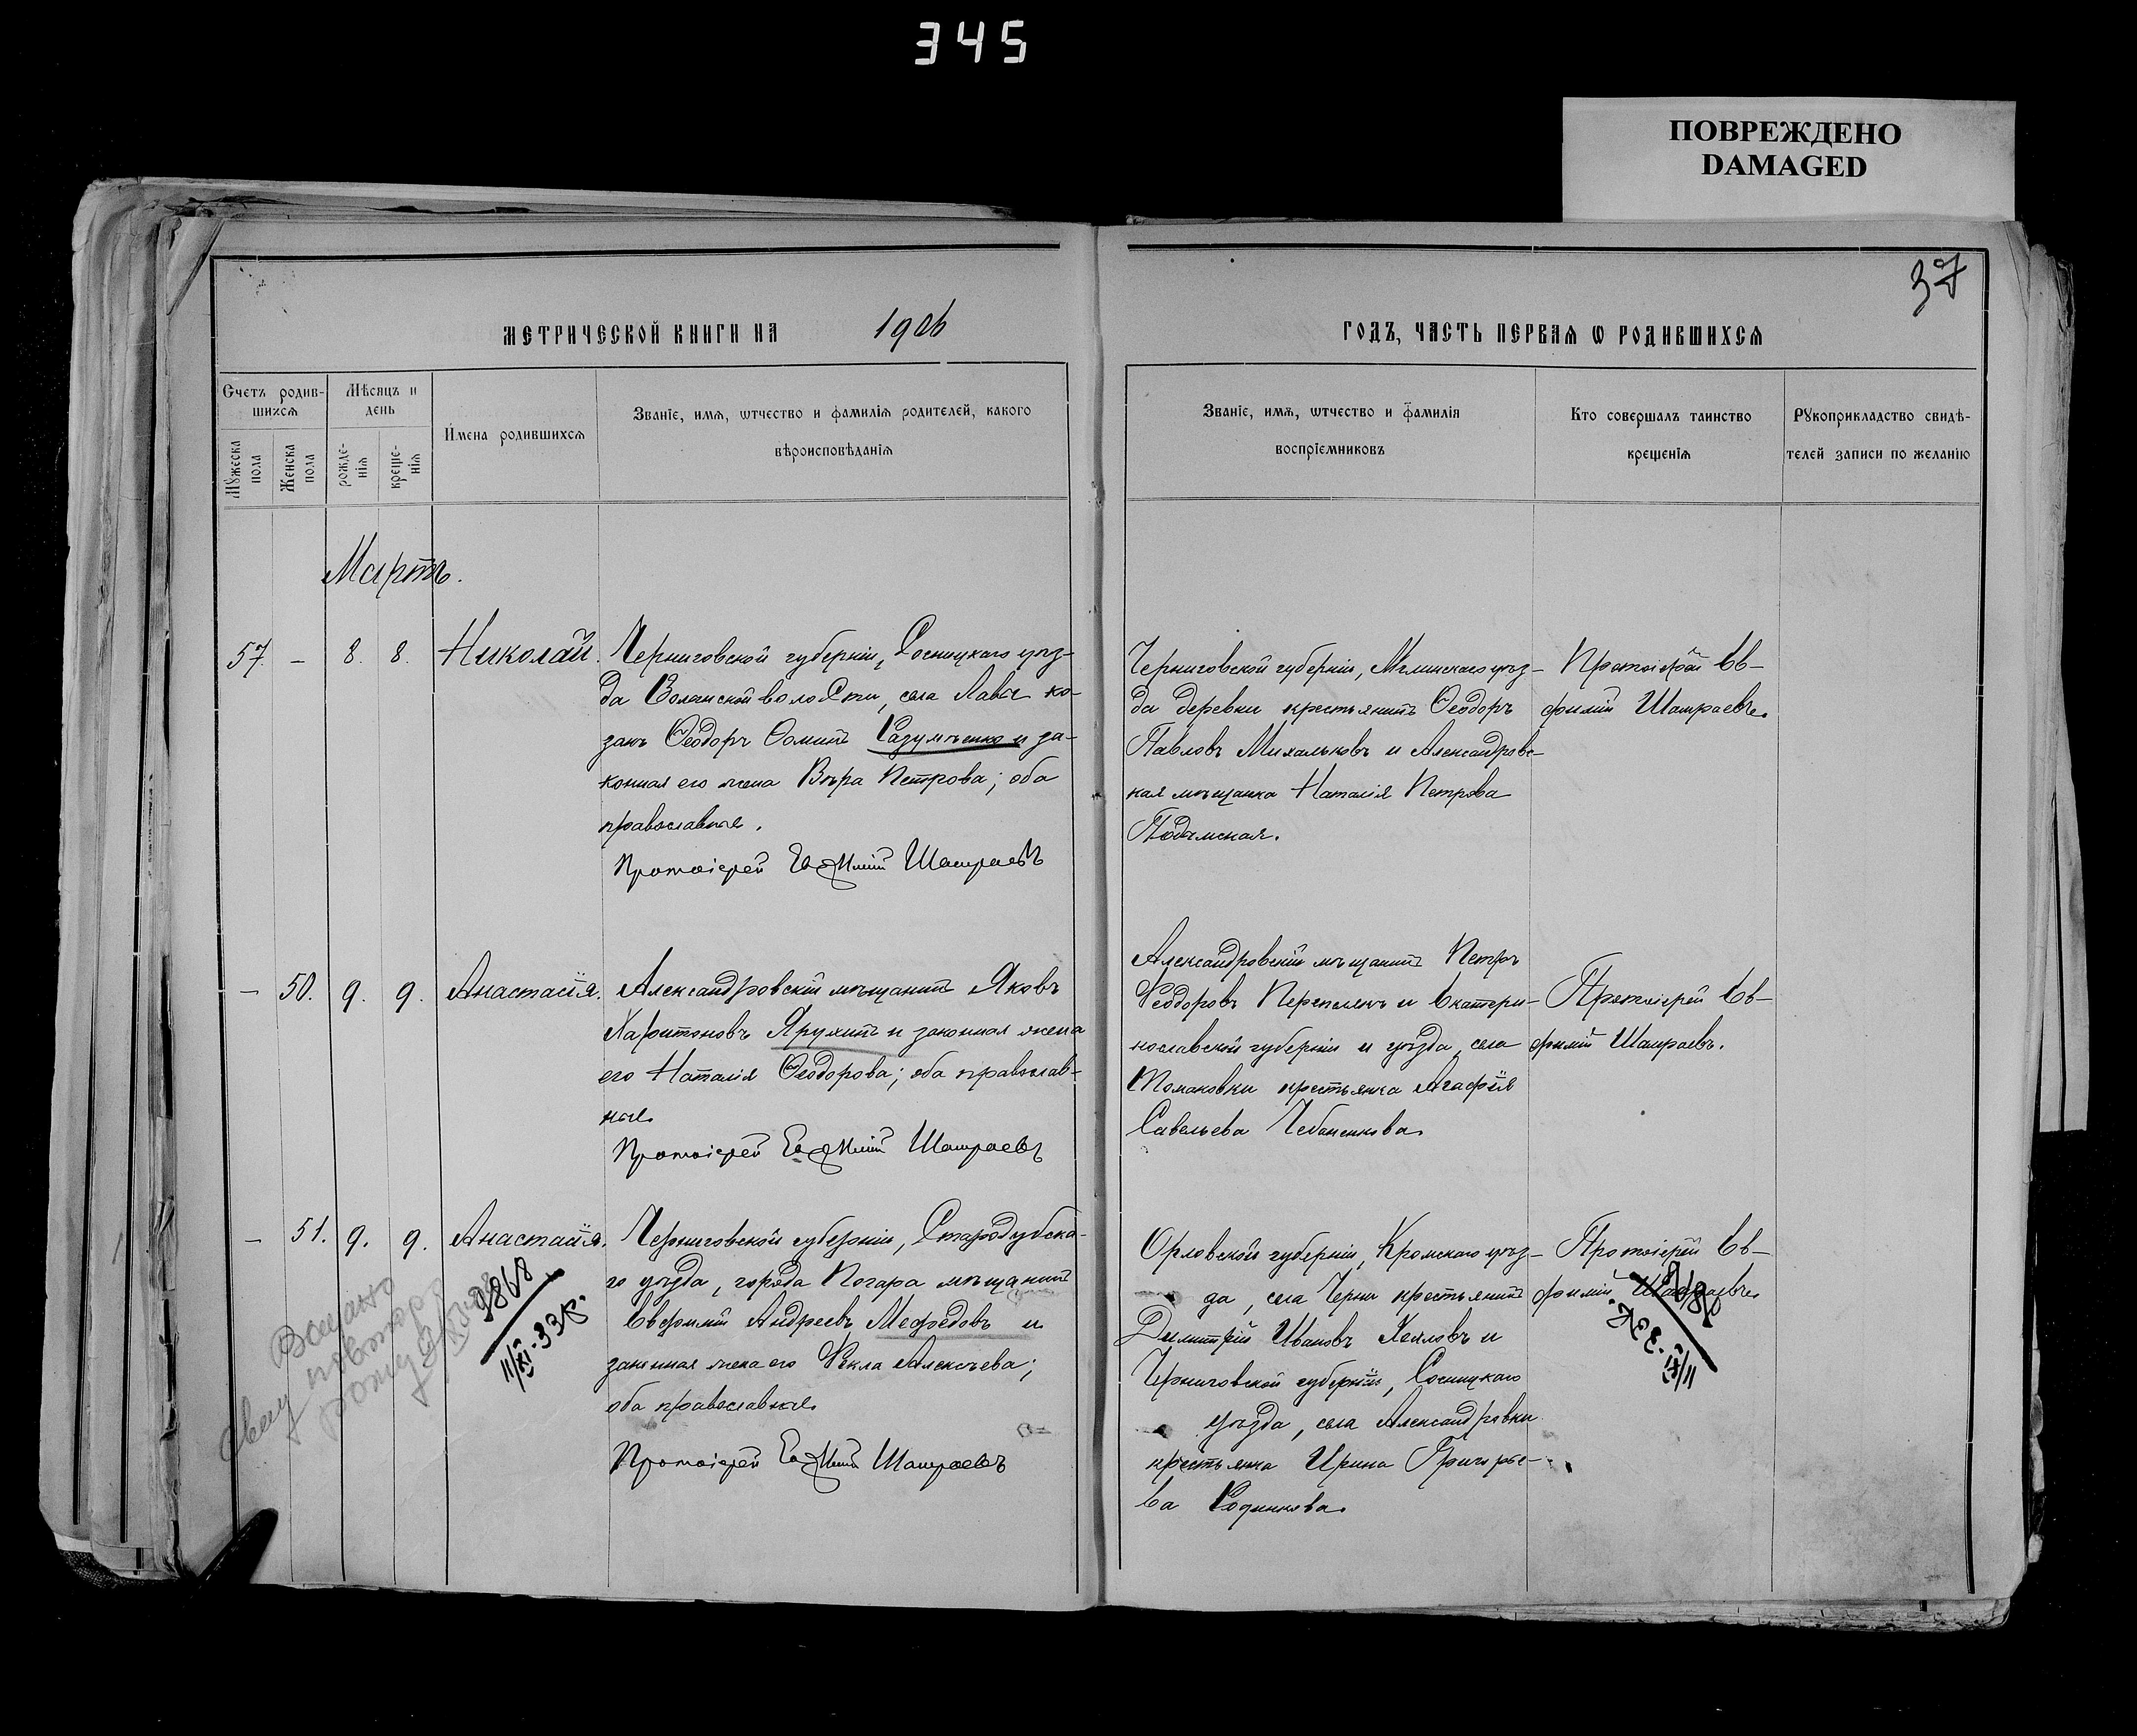 345
ПОВРЕЖДЕНО
DAMAGED
37
МЕТРИЧЕСКОЙ КНИГИ НА 1906
ГОДЪ, ЧАСТЬ ПЕРВАЯ Ѡ РОДИВШИХСЯ
Счетъ родив-
шихся
Мѣсяцъ и
день
Мꙋжеска
пола
Женска
пола
рожде-
нія
креще-
нія
Имена родившихся
Званіе, имя, ѡтчество и фамилія родителей, какого
вѣроисповѣданія
Званіе, имя, ѡтчество и фамилія
воспріемниковъ
Кто совершалъ таинство
крещенія
Рꙋкоприкладство свидѣ-
телей записи по желанію
Мартъ.
57. - 8. 8. Николай.
Черниговской губерніи, Сосницкаго уѣз-
да Волынской волости, села Лава ка-
закъ Ѳеодоръ Ѳоминъ Разумѣенко и за-
конная его жена Вѣра Петрова; оба
православные.
Протоіерей Евѳимій Шамраевъ
Черниговской губерніи, Мглинскаго уѣз-
да деревни крестьянинъ Ѳеодоръ
Павловъ Михальковъ и Александровс-
кая мѣщанка Наталія Петрова
Протоіерей Ев-
фимій Шамраевъ.
- 50. 9. 9. Анастасія.
Александровскій мѣщанинъ Яковъ
Харитоновъ Ярухинъ и законная жена
его Наталія Ѳеодорова; оба православ-
ные.
Протоіерей Евѳимій Шамраевъ
Александровскій мѣщанинъ Петръ
Ѳеодоровъ Перепелякъ и Екатери-
нославской губерніи и уѣзда, села
Томаковки крестьянка Агафія
Савельева Чебаненкова.
Протоіерей Ев-
фимій Шамраевъ.
- 51. 9. 9. Анастасія.
Черниговской губерніи, Стародубска-
го уѣзда, города Погара мѣщанинъ
Евфимій Андреевъ Мефедовъ и
законная жена его Ѳекла Алексѣева;
оба православные.
Протоіерей Евѳимій Шамраевъ
Орловской губерніи, Кромскаго уѣз-
да, села Черни крестьянинъ
Димитрій Ивановъ и
Черниговской губерніи, Сосницкаго
уѣзда, села Александровки
крестьянка Ирина Григорье-
ва Родинкова.
Протоіерей Ев-
фимій Шамраевъ.
Выдано
повтор
9868
11/XI.33к.
9868
11/XI.33к.